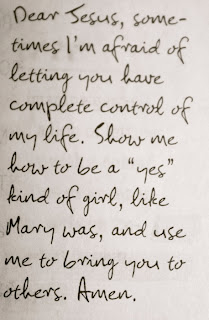 Dear Jesus, some-
times I'm afraid of
letting you have
complete control of
my life. Show me
how to be a "yes"
kind of girl, like
Mary was, and use
me to bring you to
others. Amen.